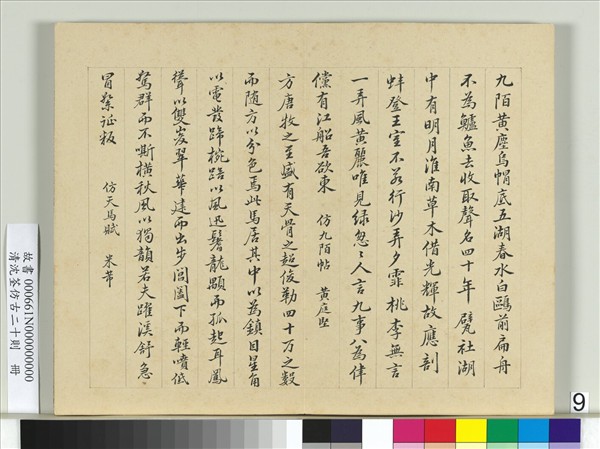 九陌黃塵烏帽底五湖春水白鷗前扁舟
不為鱸魚去收取聲名四十年 甓社湖
中有明月淮南草木借光輝故應剖
蚌登王室不若行沙弄夕霏 桃李無言
一再風黃鸝唯見綠忽忽人言九事八為律
儻有江船吾欲東 仿九陌帖 黃庭堅
方唐牧之至盛有天骨之超俊勒四十万之數
而隨方以分色焉此馬居其中以為鎮目星角
以電發蹄椀踣以風迅鬐龍顒而孤起耳鳳
聳以雙峙翠華建而出步閶闔下而輕噴低
駑群而不嘶橫秋風以獨韻若夫躍溪舒急
冒絮征叛 仿天馬賦 米芾
故書 000661N000000000
清沈荃仿古二十則 冊
9